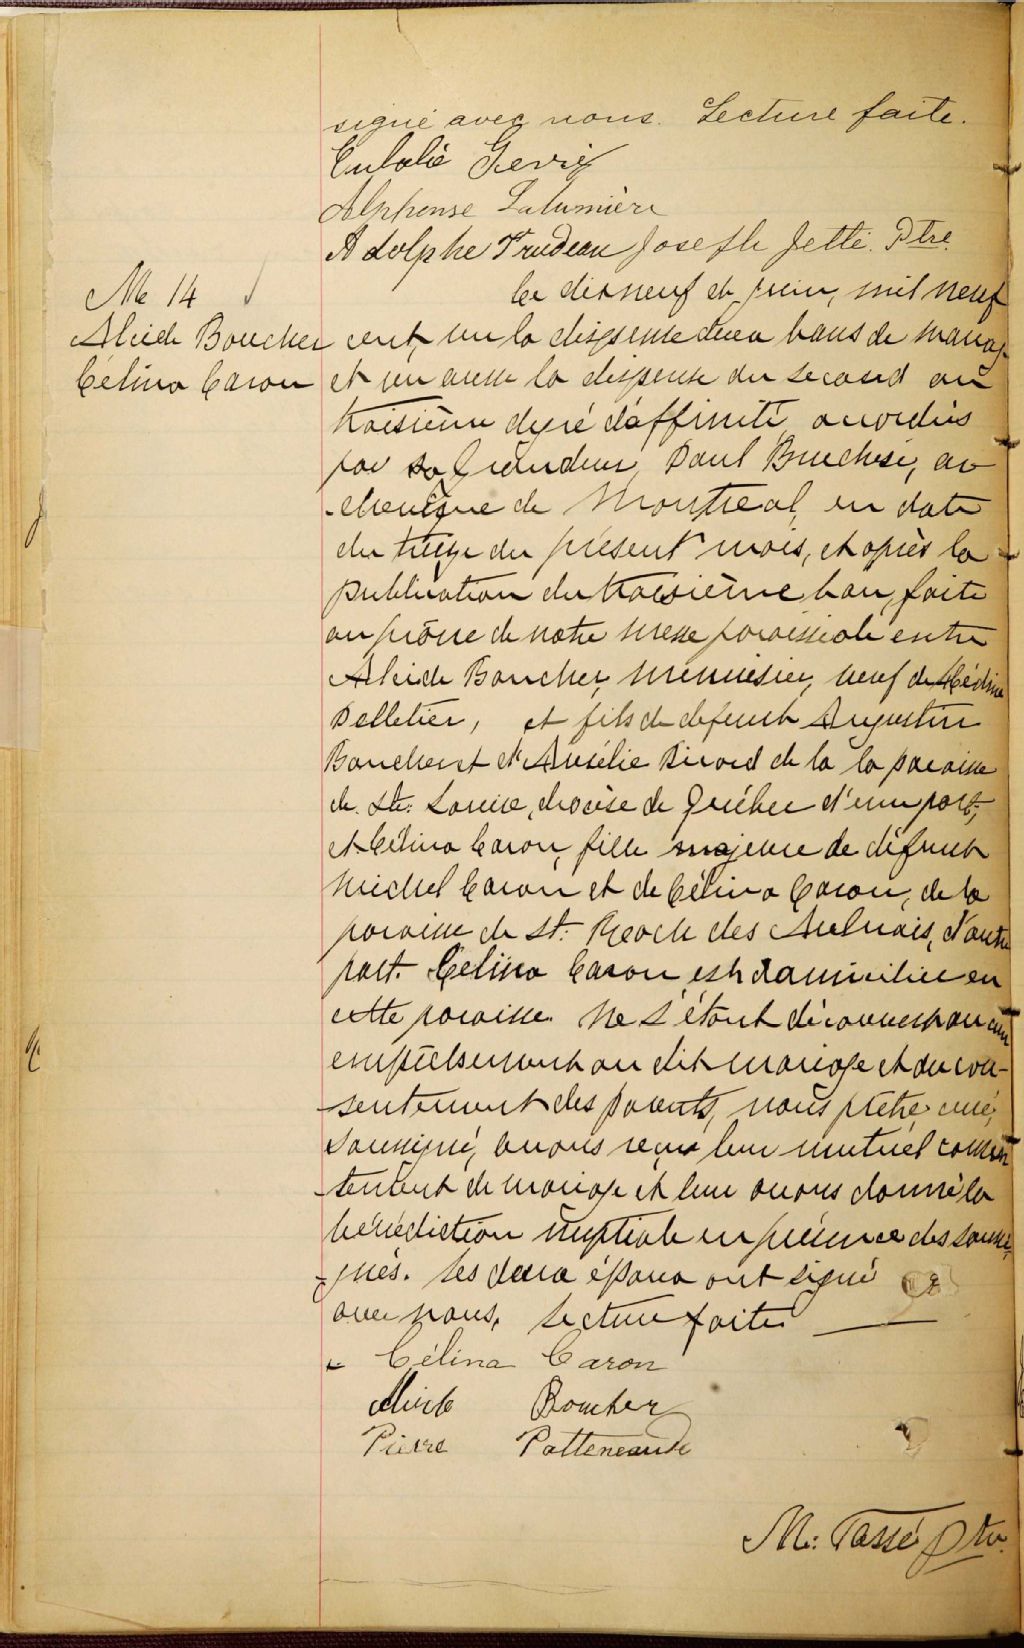 signé avec nous. Lecture faite.
Eulalie
Alphonse Lalumière
Adolphe Trudeau Joseph Jetté. Ptre.
M 14
Alcide Boucher
Célina Caron
Le dixneuf de juin, mil neuf
cent, vu la dispense deux bans de mariage
et vu aussi la dispense du second au
troisième degré d'affinité accordées
par sa Grandeur, Paul Bruchési, ar
-chevêque de Montreal, en date
du treize du présent mois, et après la
publication du troisième ban, faite
au prône de notre messe paroissiale entre
Alcide Boucher, menuisier, veuf de
Pelletier, et fils de defunt Augustin
Boucher et d'Aurélie Picard de la la paroisse
de Ste: Louise, diocèse de Québec d'une part;
et Célina Caron, fille majeure de défunt
Michel Caron et de Célina Caron, de la
paroisse de St: Roch des Aulnais, d'autre
part. Célina Caron est domiciliée en
cette paroisse. Ne s'étant découvert aucun
empêchement au dit mariage et du con-
-sentement des parents, nous prêtre curé,
soussigné, avons reçu leur mutuel consen
-tement de mariage et leur avons donné la
bénédiction nuptiale en présence des soussi-
-gnés. Les deux époux ont signé
avec nous. Lecture faite
Célina Caron
Alcide Boucher
Pierre Patteneaude
M: Tassé Ptre.